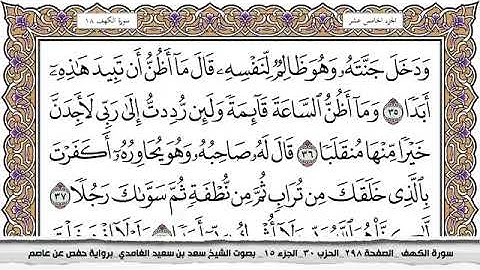 سورة الكهف ١٨
الجزء الخامس عشر
وَدَخَلَ جَنَّتَهُۥ وَهُوَ ظَالِمٌ لِّنَفْسِهِۦ قَالَ مَآ أَظُنُّ أَن تَبِيدَ هَٰذِهِۦٓ
أَبَدًا ٣٥ وَمَآ أَظُنُّ ٱلسَّاعَةَ قَآئِمَةً وَلَئِن رُّدِدتُّ إِلَىٰ رَبِّى لَأَجِدَنَّ
خَيْرًا مِّنْهَا مُنقَلَبًا ٣٦ قَالَ لَهُۥ صَاحِبُهُۥ وَهُوَ يُحَاوِرُهُۥٓ أَكَفَرْتَ
بِٱلَّذِى خَلَقَكَ مِن تُرَابٍ ثُمَّ مِن نُّطْفَةٍ ثُمَّ سَوَّىٰكَ رَجُلًا ٣٧
سورة الكهف _الصفحة ٢٩٨ _الحزب ٣٠ _الجزء ١٥ _ بصوت الشيخ سعد بن سعيد الغامدي _برواية حفص عن عاصم